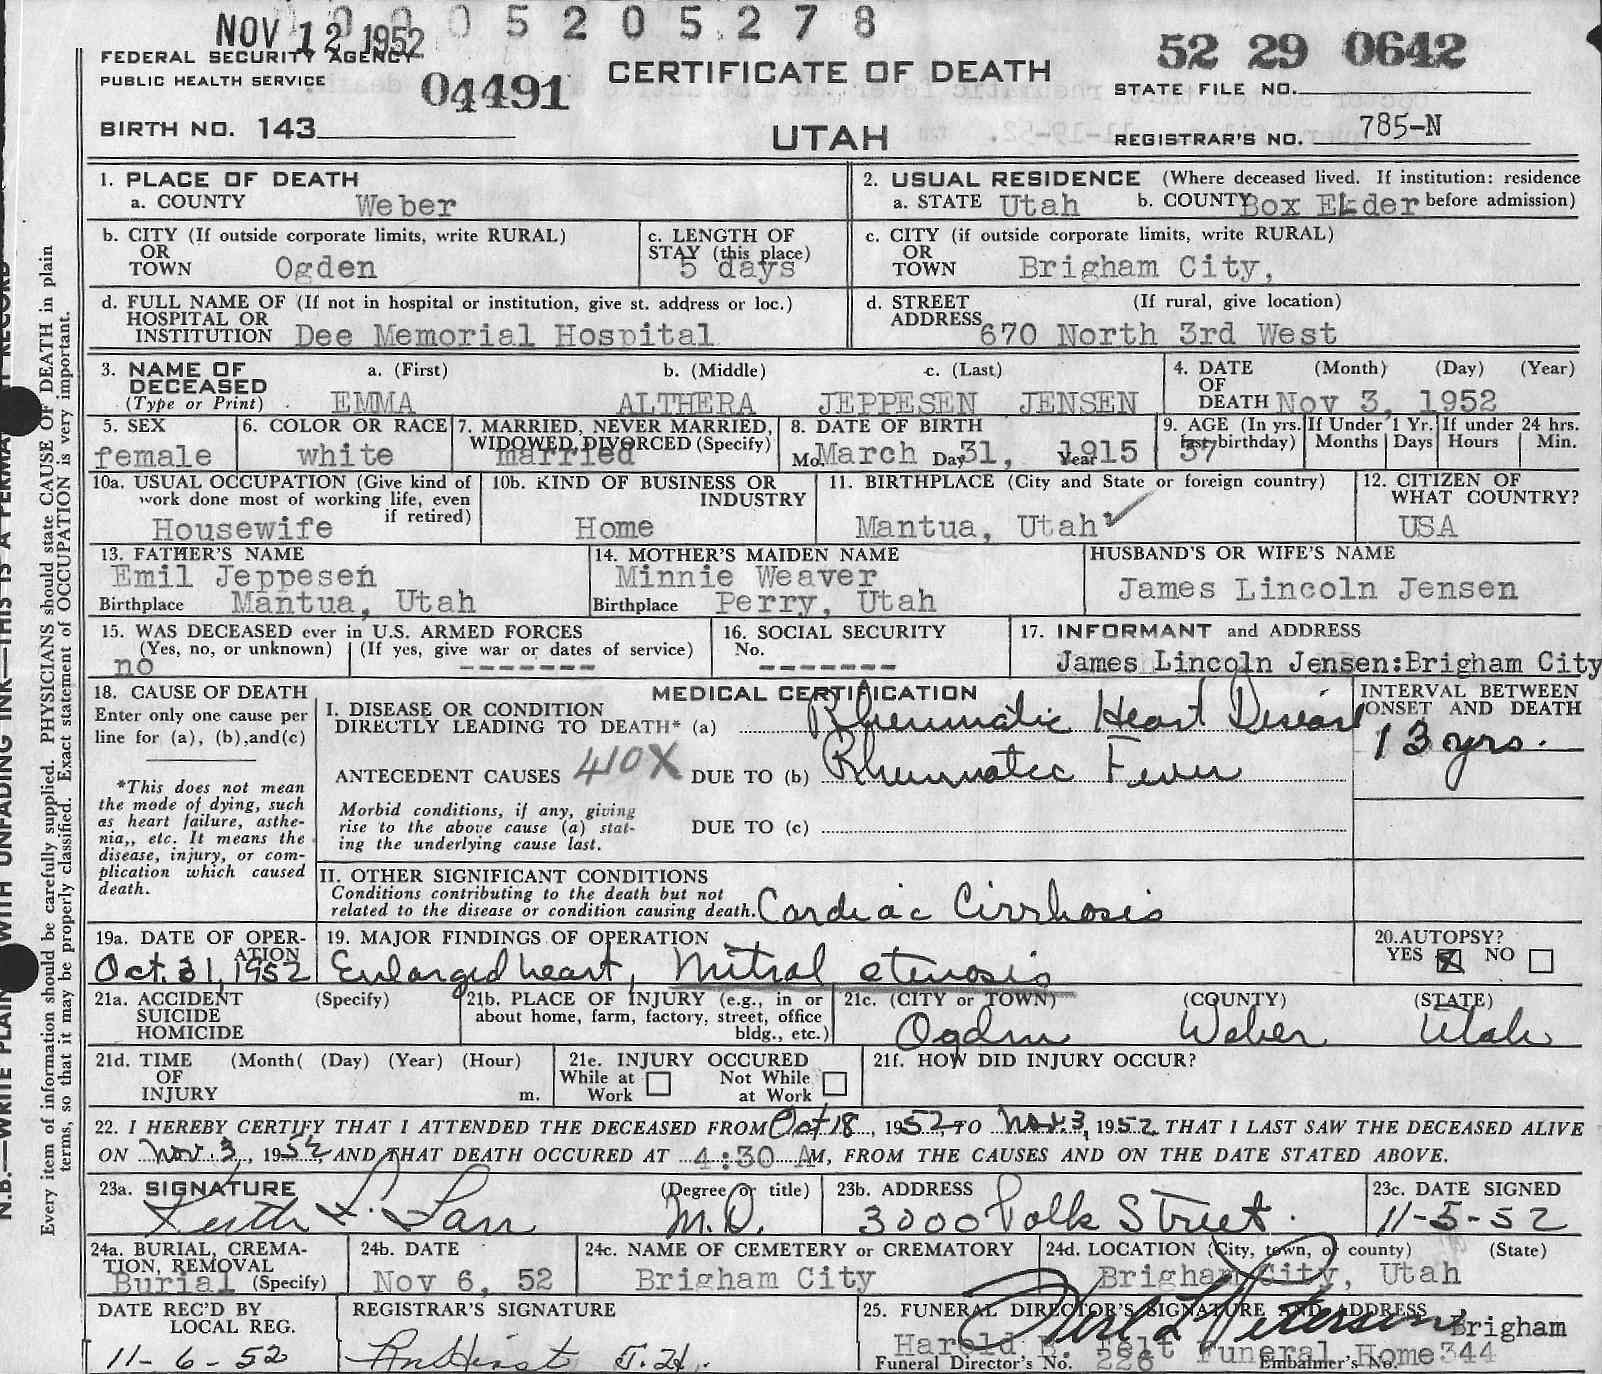 NOV 12 1952
0005205278
52 29 0642
FEDERAL SECURITY AGENCY
PUBLIC HEALTH SERVICE
04491
CERTIFICATE OF DEATH
STATE FILE NO.
BIRTH NO. 143
UTAH
REGISTRAR'S NO. 785-N
1. PLACE OF DEATH
a. COUNTY Weber
2. USUAL RESIDENCE (Where deceased lived. If institution: residence
a. STATE Utah b. COUNTY Box Elder before admission)
b. CITY (If outside corporate limits, write RURAL)
OR
TOWN Ogden
c. LENGTH OF
STAY (this place)
5 days
c. CITY (if outside corporate limits, write RURAL)
OR
TOWN Brigham City,
d. FULL NAME OF (If not in hospital or institution, give st. address or loc.)
HOSPITAL OR
INSTITUTION Dee Memorial Hospital
d. STREET (If rural, give location)
ADDRESS 670 North 3rd West
3. NAME OF a. (First) b. (Middle) c. (Last)
DECEASED
(Type or Print) EMMA ALTHERA JEPPESEN JENSEN
4. DATE (Month) (Day) (Year)
OF
DEATH Nov 3, 1952
5. SEX
female
6. COLOR OR RACE
white
7. MARRIED, NEVER MARRIED,
WIDOWED, DIVORCED (Specify)
married
8. DATE OF BIRTH
Mo. March Day 31, Year 1915
9. AGE (In yrs.
last birthday)
37
If Under 1 Yr.
Months Days
If under 24 hrs.
Hours Min.
10a. USUAL OCCUPATION (Give kind of
work done most of working life, even
if retired)
Housewife
10b. KIND OF BUSINESS OR
INDUSTRY
Home
11. BIRTHPLACE (City and State or foreign country)
Mantua, Utah
12. CITIZEN OF
WHAT COUNTRY?
USA
13. FATHER'S NAME
Emil Jeppesen
Birthplace Mantua, Utah
14. MOTHER'S MAIDEN NAME
Minnie Weaver
Birthplace Perry, Utah
HUSBAND'S OR WIFE'S NAME
James Lincoln Jensen
15. WAS DECEASED ever in U.S. ARMED FORCES
(Yes, no, or unknown) (If yes, give war or dates of service)
no -------
16. SOCIAL SECURITY
No.
-------
17. INFORMANT and ADDRESS
James Lincoln Jensen:Brigham City
18. CAUSE OF DEATH
Enter only one cause per
line for (a), (b),and(c)
*This does not mean
the mode of dying, such
as heart failure, asthe-
nia,, etc. It means the
disease, injury, or com-
plication which caused
death.
MEDICAL CERTIFICATION
I. DISEASE OR CONDITION
DIRECTLY LEADING TO DEATH* (a) Rheumatic Heart Disease
INTERVAL BETWEEN
ONSET AND DEATH
13 yrs.
ANTECEDENT CAUSES 410X DUE TO (b) Rheumatic Fever
Morbid conditions, if any, giving
rise to the above cause (a) stat-
ing the underlying cause last.
DUE TO (c)
II. OTHER SIGNIFICANT CONDITIONS
Conditions contributing to the death but not
related to the disease or condition causing death. Cardiac Cirrhosis
19a. DATE OF OPER-
ATION
Oct. 31, 1952
19. MAJOR FINDINGS OF OPERATION
Enlarged heart, Mitral stenosis
20.AUTOPSY?
YES X NO
21a. ACCIDENT (Specify)
SUICIDE
HOMICIDE
21b. PLACE OF INJURY (e.g., in or
about home, farm, factory, street, office
bldg., etc.)
21c. (CITY or TOWN) (COUNTY) (STATE)
Ogden Weber Utah
21d. TIME (Month( (Day) (Year) (Hour)
OF
INJURY m.
21e. INJURY OCCURED
While at Work Not While at Work
21f. HOW DID INJURY OCCUR?
22. I HEREBY CERTIFY THAT I ATTENDED THE DECEASED FROM Oct 18, 1952, TO Nov. 3, 1952 THAT I LAST SAW THE DECEASED ALIVE
ON Nov. 3, 1952, AND THAT DEATH OCCURED AT 4:30 AM, FROM THE CAUSES AND ON THE DATE STATED ABOVE.
23a. SIGNATURE (Degree or title)
M.D.
23b. ADDRESS
3000 Polk Street.
23c. DATE SIGNED
11-5-52
24a. BURIAL, CREMA-
TION, REMOVAL
Burial (Specify)
24b. DATE
Nov 6, 52
24c. NAME OF CEMETERY or CREMATORY
Brigham City
24d. LOCATION (City, town, or county) (State)
Brigham City, Utah
DATE REC'D BY
LOCAL REG.
11-6-52
REGISTRAR'S SIGNATURE
25. FUNERAL DIRECTOR'S SIGNATURE AND ADDRESS
Brigham
Harold B. Felt Funeral Home
Funeral Director's No. 226 Embalmer's No. 344
N.B.—WRITE PLAINLY WITH UNFADING INK—THIS IS A PERMANENT RECORD
Every item of information should be carefully supplied. PHYSICIANS should state CAUSE OF DEATH in plain
terms, so that it may be properly classified. Exact statement of OCCUPATION is very important.